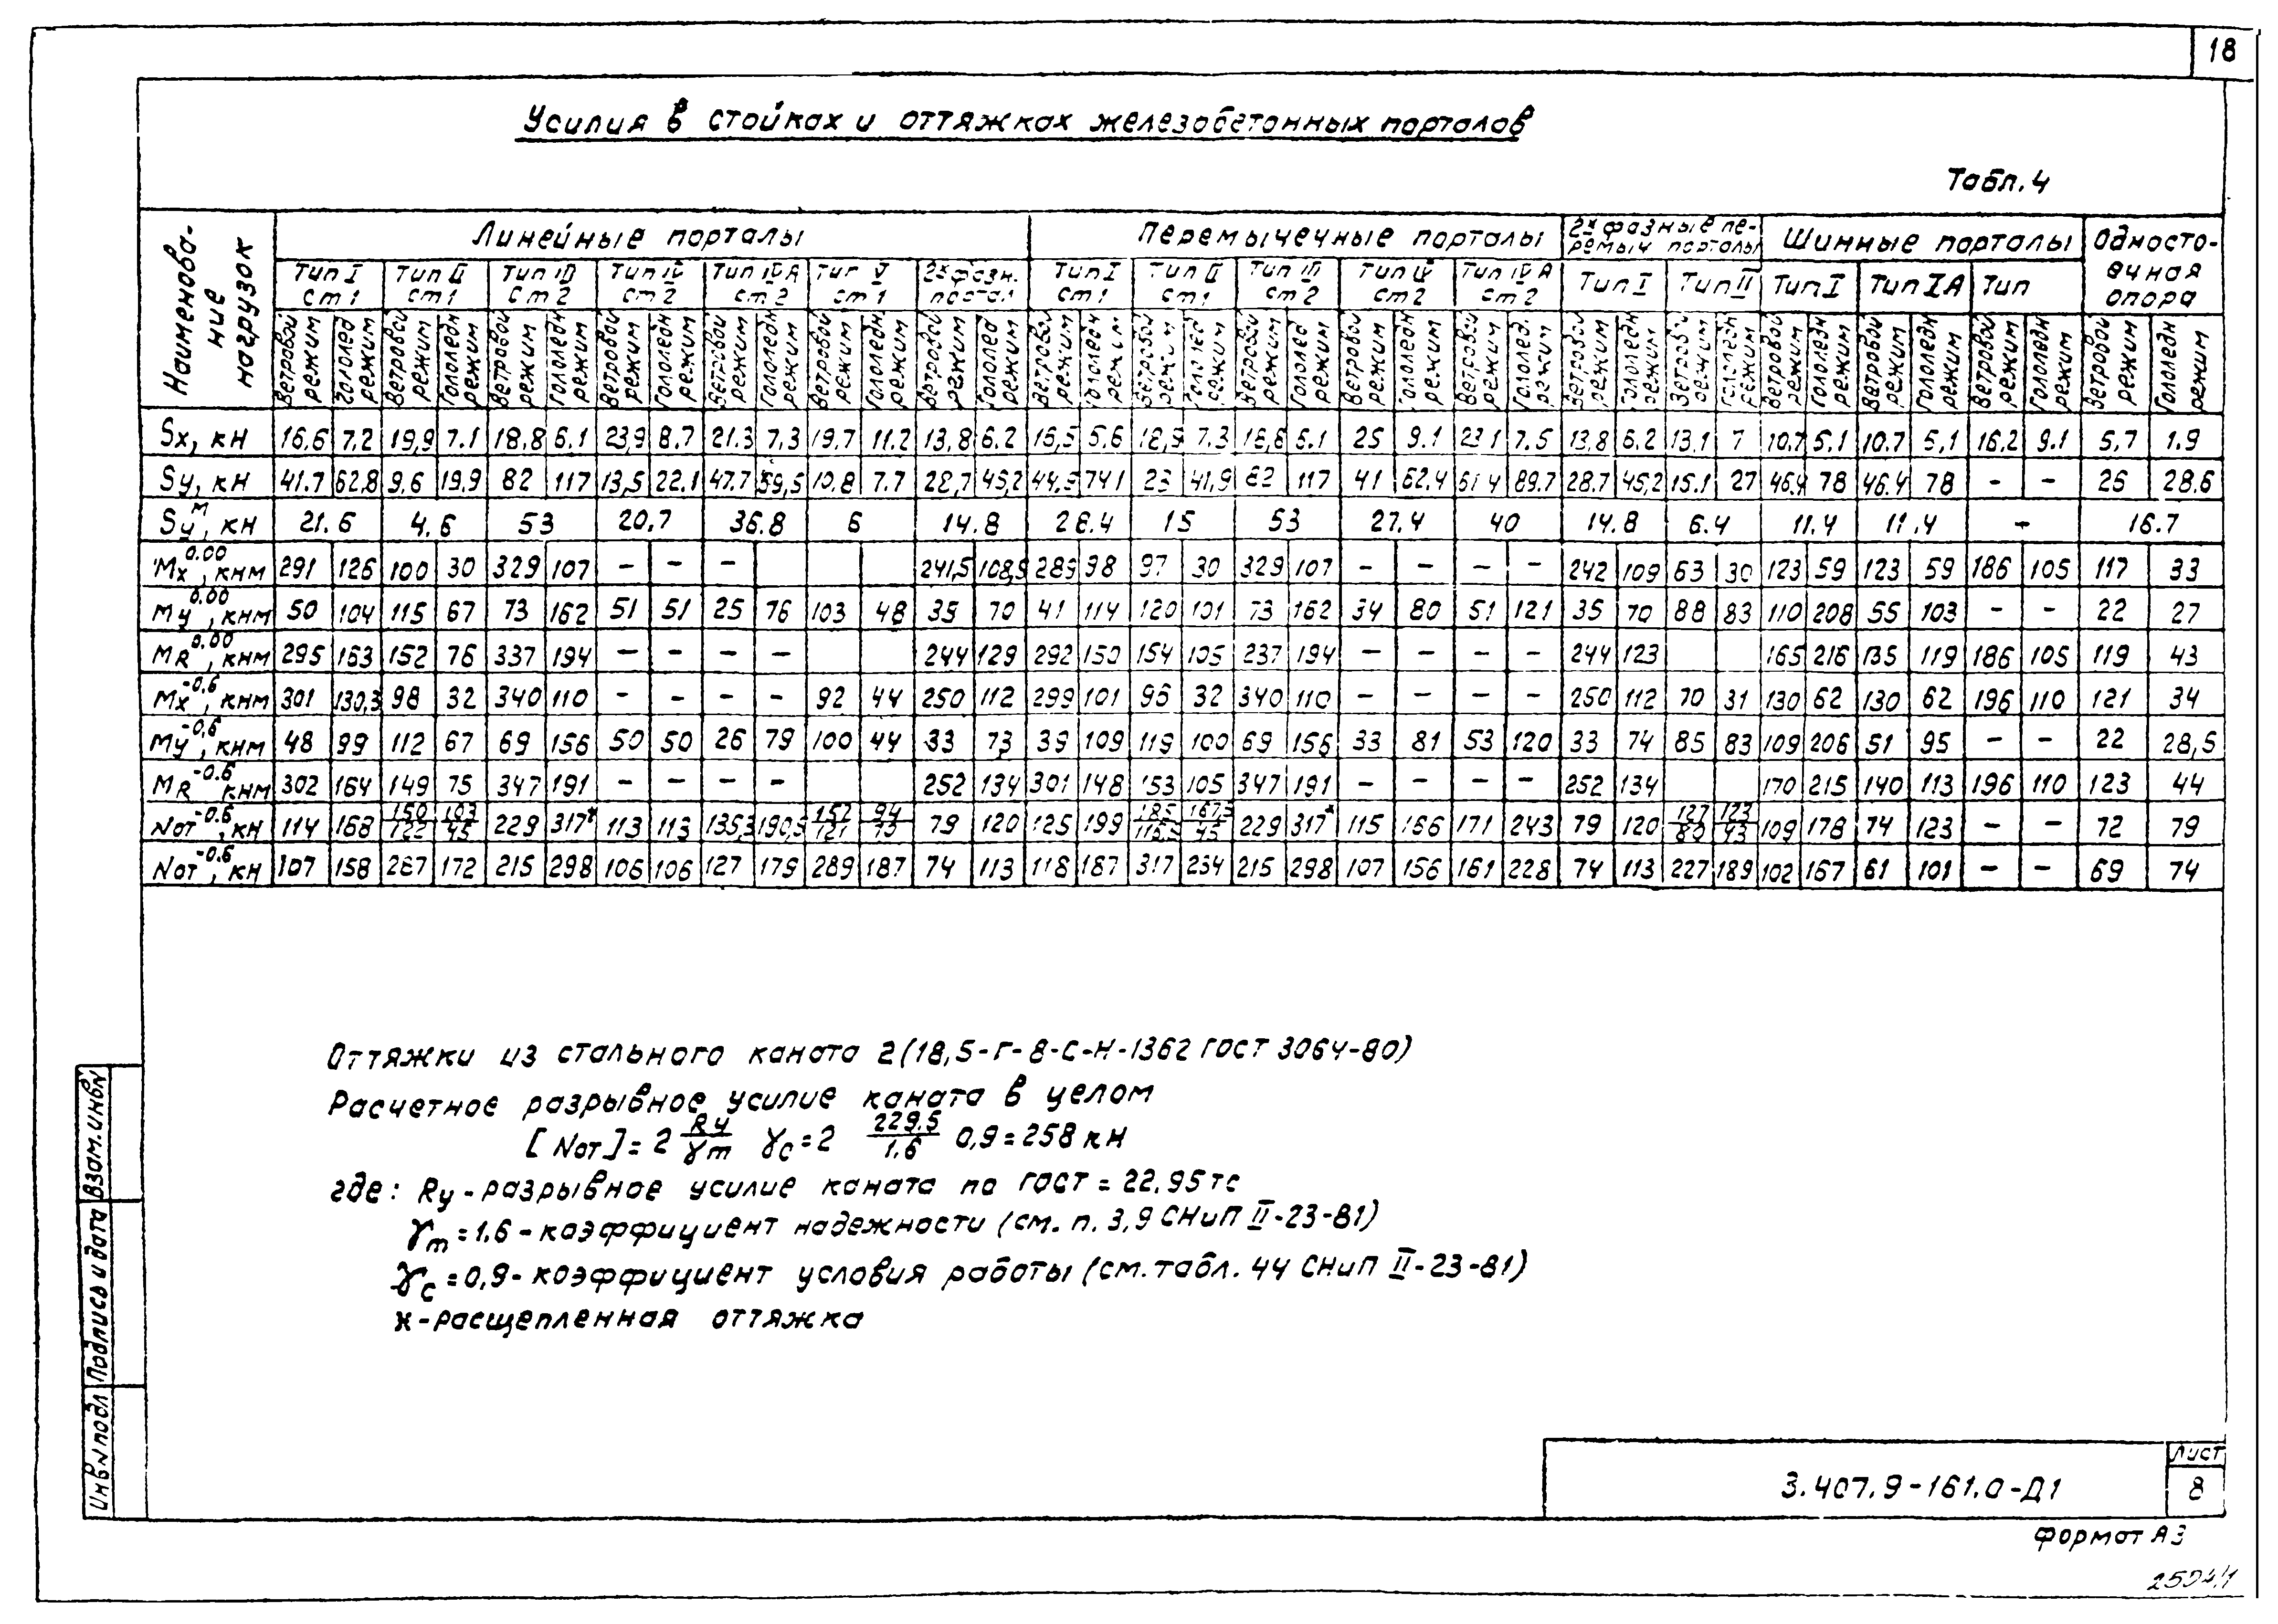 18
Усилия в стойках и оттяжках железобетонных порталов
Табл. 4
Наименование нагрузок
Линейные порталы
Перемычечные порталы
2х фазные перемыч порталы
Шинные порталы
Одностоечная опора
Тип I ст1 Тип II ст1 Тип III ст2 Тип IV ст2 Тип IVА ст2 Тип V ст1 2х фазн. портал Тип I ст1 Тип II ст1 Тип III ст2 Тип IV ст2 Тип IVА ст2 Тип I Тип II Тип I Тип IА Тип
Ветровой режим Гололедн режим
Sx, кн 16.6 7.2 19,9 7.1 18,8 6.1 23,9 8.7 21.3 7,3 19.7 11.2 13,8 6.2 16,5 5.6 18,9 7.3 18,8 6.1 25 9.1 23.1 7.5 13,8 6.2 13,1 7 10,7 5,1 10.7 5,1 16,2 9.1 5,7 1.9
Sy, кн 41.7 62,8 9,6 19,9 82 117 13,5 22.1 47.7 59,5 10.8 7.7 28,7 45,2 44.5 74.1 23 41,9 82 117 41 62.4 61.4 89.7 28.7 45,2 15.1 27 46.4 78 46.4 78 - - 26 28.6
Sуᴹ, кн 21.6 4.6 53 20,7 36.8 6 14.8 26.4 15 53 27.4 40 14.8 6.4 11.4 11.4 - 16.7
Mx 0.00, кнм 291 126 100 30 329 107 - - - 241,5 108,9 289 98 97 30 329 107 - - - - 242 109 63 30 123 59 123 59 186 105 117 33
My 0.00, кнм 50 104 115 67 73 162 51 51 25 76 103 48 35 70 41 114 120 101 73 162 34 80 51 121 35 70 88 83 110 208 55 103 - - 22 27
MR 0.00, кнм 295 163 152 76 337 194 - - - - 244 129 292 150 154 105 237 194 - - - - 244 123 165 216 135 119 186 105 119 43
Mx -0.6, кнм 301 130,3 98 32 340 110 - - - - 92 44 250 112 299 101 96 32 340 110 - - - - 250 112 70 31 130 62 130 62 196 110 121 34
My -0,6, кнм 48 99 112 67 69 156 50 50 26 79 100 44 33 73 39 109 119 100 69 156 33 81 53 120 33 74 85 83 109 206 51 95 - - 22 28,5
MR -0.6 кнм 302 164 149 75 347 191 - - - - 252 134 301 148 153 105 347 191 - - - - 252 134 170 215 140 113 196 110 123 44
Nот -0.6, кн 114 168 150/122 103/45 229 317* 113 113 135,3 190,5 152/121 94/73 79 120 125 199 229 317* 115 166 171 243 79 120 127/80 123/43 109 178 74 123 - - 72 79
Nот -0.6, кн 107 158 287 172 215 298 106 106 127 179 289 187 74 113 118 187 317 234 215 298 107 156 161 228 74 113 227 189 102 167 61 101 - - 69 74
Оттяжки из стального каната 2(18,5-Г-8-С-Н-1362 ГОСТ 3064-80)
Расчетное разрывное усилие каната в целом
[Nот] = 2 Ry/γm γc = 2 229.5/1.6 0,9 = 258 кН
где: Ry - разрывное усилие каната по ГОСТ = 22,95 тс
γm = 1.6 - коэффициент надежности (см. п. 3,9 СНиП II-23-81)
γc = 0,9 - коэффициент условия работы (см. табл. 44 СНиП II-23-81)
х - расщепленная оттяжка
Инв№ подл
Подпись и дата
Взам. инв№
3.407.9-161.0-Д1
Лист
8
Формат А3